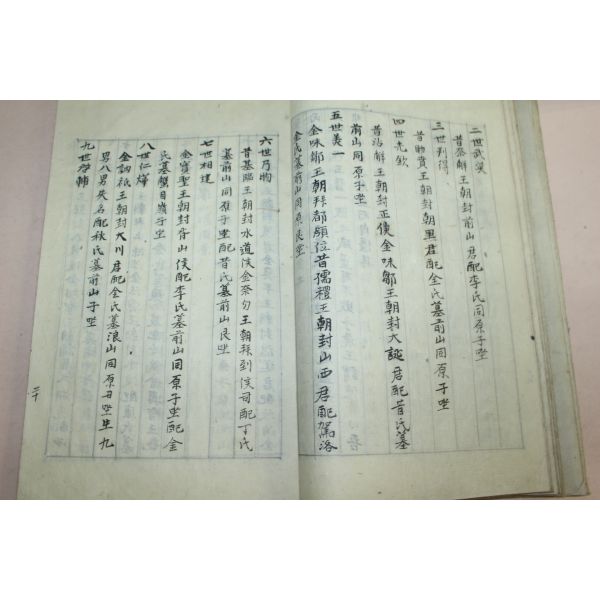 二世武燮
昔奈解王朝封前山君配李氏同原子坐
三世列得
昔助賁王朝封朝里君配金氏墓前山同原子坐
四世光欽
昔沾解王朝封正使金味鄒王朝封大誕君配昔氏墓
前山同原子坐
五世美一
金味鄒王朝拜都顧位昔儒禮王朝封山西君配駕洛
金氏墓前山同原艮坐
六世乃昫
昔基臨王朝封水道侯金奈勿王朝拜到侯司配丁氏
墓前山同原子坐配昔氏墓前山艮坐
七世相建
金實聖王朝封斉山侯配李氏墓前山同原子坐配金
氏墓蟹目嶺子坐
八世仁燁
金訥祇王朝封大川君配全氏墓浪山同原丑坐生九
男八男失名配秋氏墓前山子坐
九世
二十